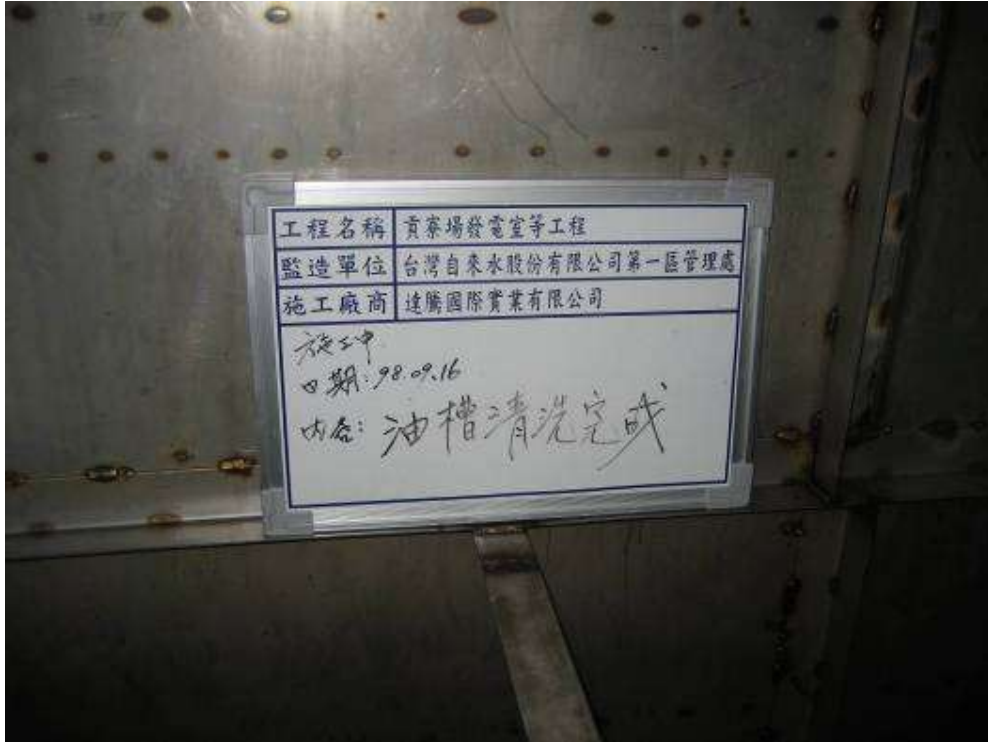 工程名稱 貢寮場發電室等工程
監造單位 台灣自來水股份有限公司第一區管理處
施工廠商 達騰國際實業有限公司
施工中
日期:98.09.16
內容:油槽清洗完成